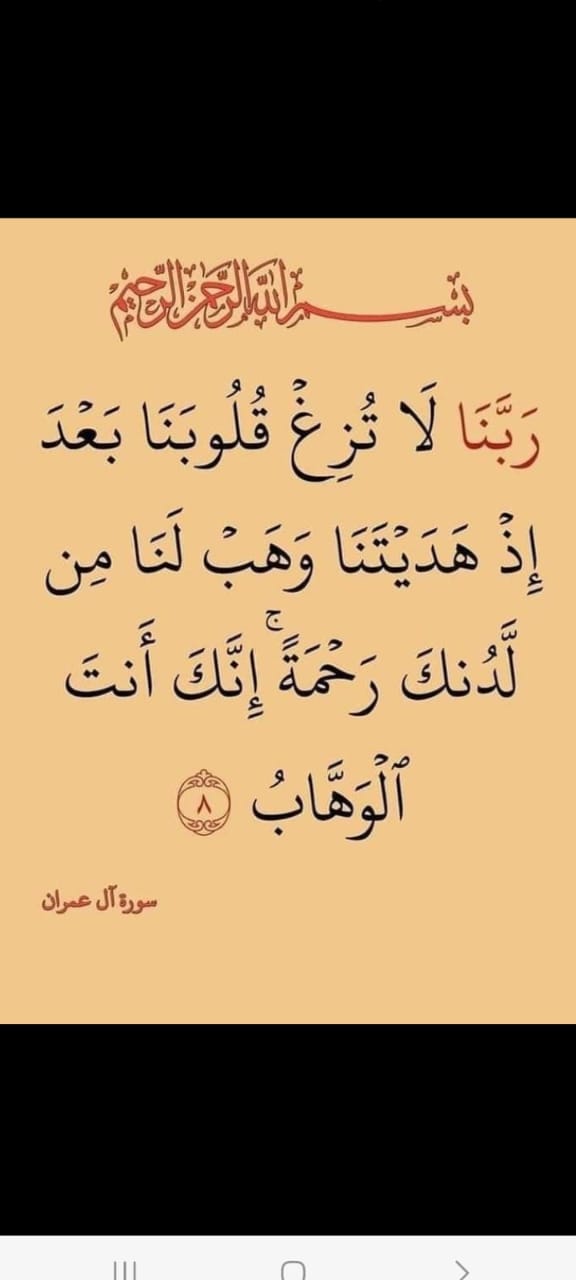 بِسْمِ اللَّهِ الرَّحْمَٰنِ الرَّحِيمِ
رَبَّنَا لَا تُزِغْ قُلُوبَنَا بَعْدَ
إِذْ هَدَيْتَنَا وَهَبْ لَنَا مِن
لَّدُنكَ رَحْمَةً ۚ إِنَّكَ أَنتَ
ٱلْوَهَّابُ ٨
سورة آل عمران